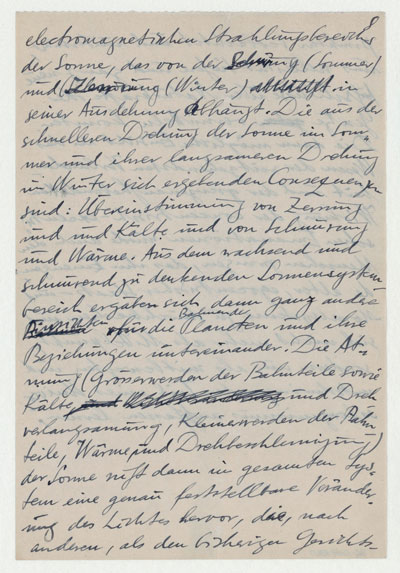 8
electromagnetischen Strahlungsbereichs
der Sonne, das von der Schwung (Sommer)
und Zerrung (Winter) in
seiner Ausdehnung abhängt. Die aus der
schnelleren Drehung der Sonne im Som-
mer und ihrer langsameren Drehung
im Winter sich ergebenden Consequenzen
sind: Übereinstimmung von Zerrung
und und Kälte und von
und Wärme. Aus dem wachsend und
zu denkenden Sonnensystem
bereich ergaben sich dann ganz andre
für die Planeten und ihre
Beziehungen untereinander. Die At-
mung (Grösserwerden der Bahnteile sowie
Kälte und Dreh
verlangsamung, Kleinerwerden der Bahn
teile, Wärme und Drehbeschleunigung)
der Sonne ruft dann im gesamten Sys-
tem eine genau feststellbare Veränder-
ung des Lichtes hervor, die, nach
anderen, als den bisherigen Gesichts-